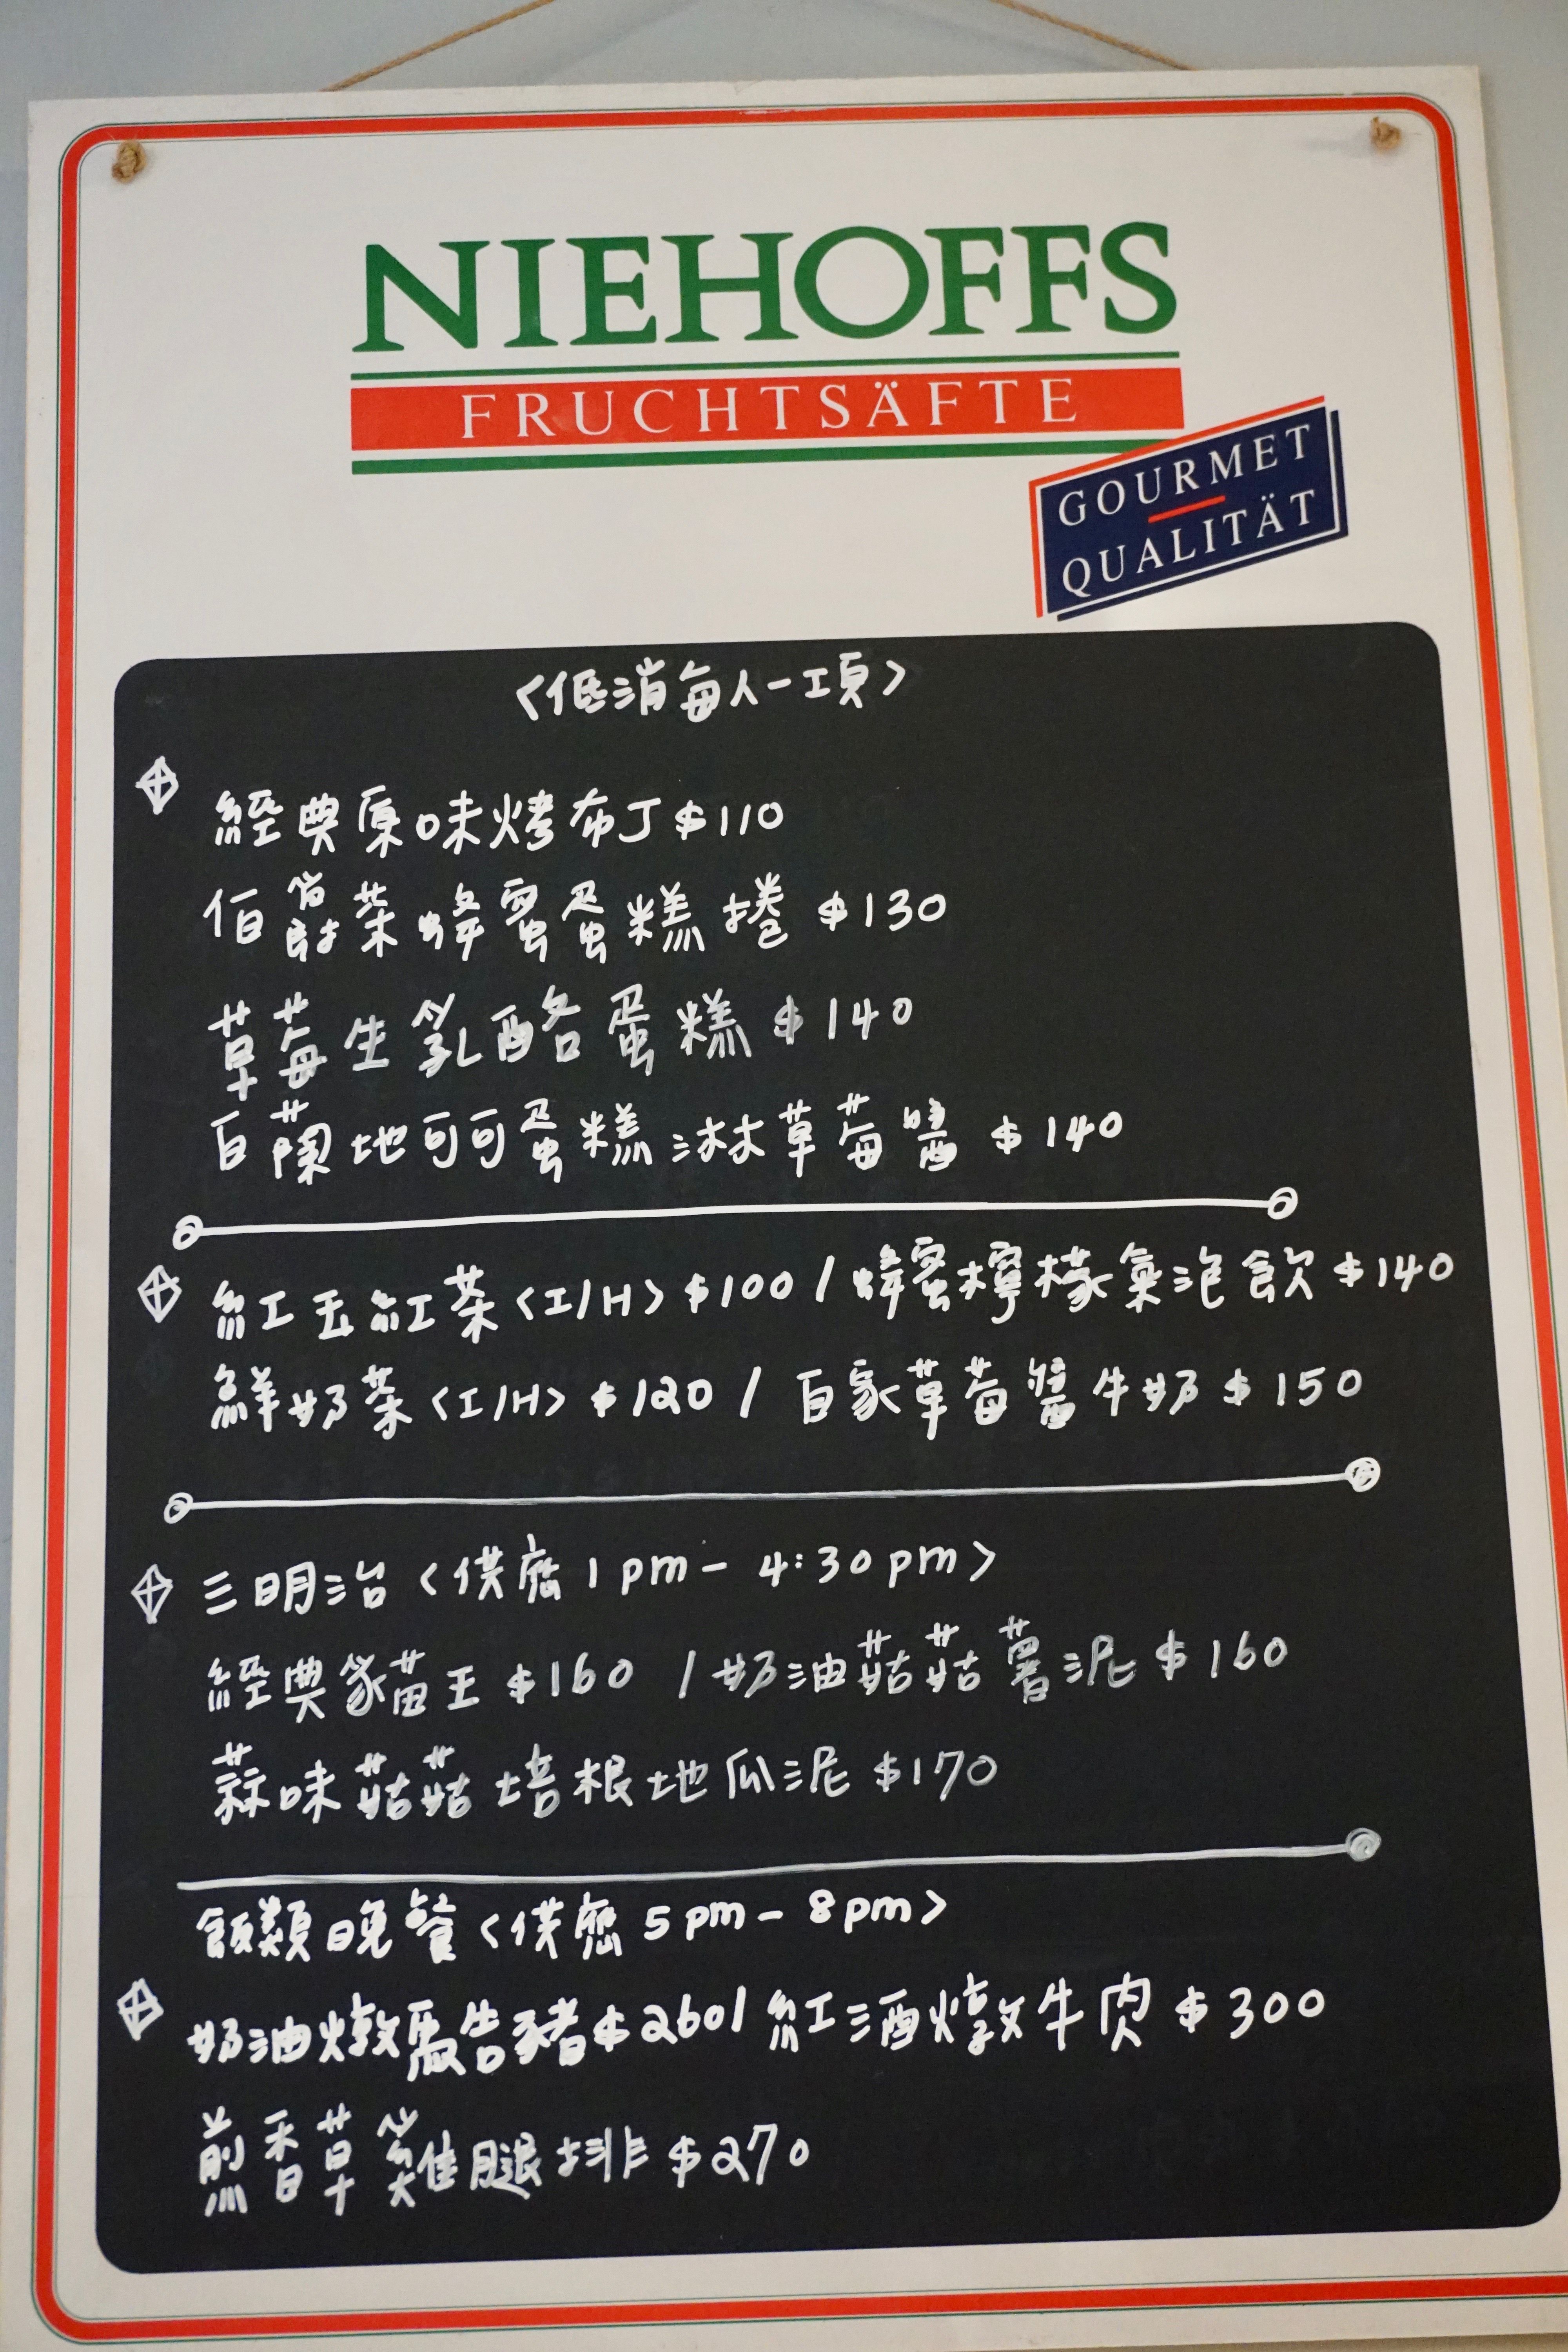 NIEHOFFS
FRUCHTSÄFTE
GOURMET
QUALITÄT
<低消每人一項>
經典原味烤布丁$110
伯爵茶蜂蜜蛋糕捲 $130
草莓生乳酪蛋糕 $140
白蘭地可可蛋糕淋草莓醬 $140
紅玉紅茶<I/H> $100 / 蜂蜜檸檬氣泡飲 $140
鮮奶茶<I/H> $120 / 自家草莓醬牛奶 $150
三明治 <供應 1pm - 4:30pm>
經典貓王 $160 / 奶油菇菇薯泥 $160
蒜味菇菇培根地瓜泥 $170
飯類晚餐 <供應 5pm - 8pm>
奶油燉馬告豬$260/ 紅酒燉牛肉 $300
煎香草雞腿排 $270